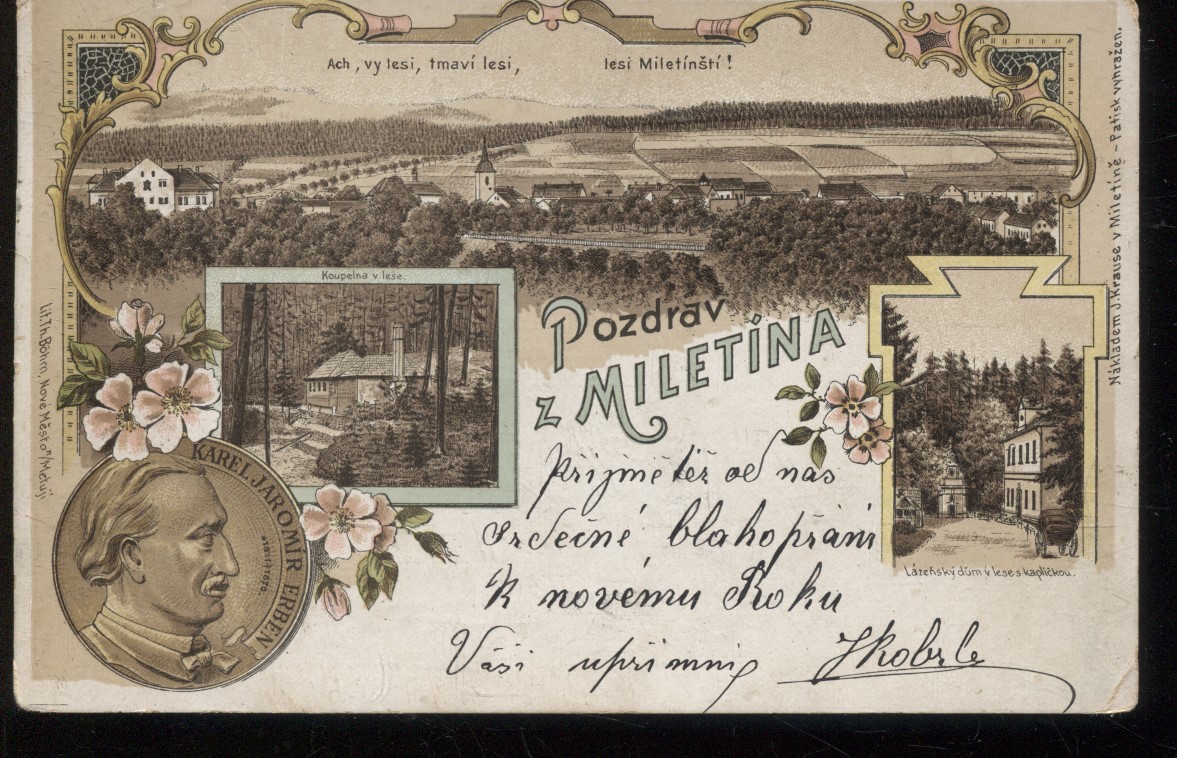 Ach, vy lesi, tmaví lesi, lesi Miletínští!
Koupelna v lese.
Pozdrav
z MILETÍNA
KAREL JAROMIR ERBEN
*1811 †1870
Lázeňský dům v lese s kapličkou.
Lit. Th. Böhm, Nové Město n/Metují.
Nákladem J. Krause v Miletíně – Patisk vyhražen.
Přijmětež od nás
Srdečné blahopřání
K novému Roku
Váši upřimní